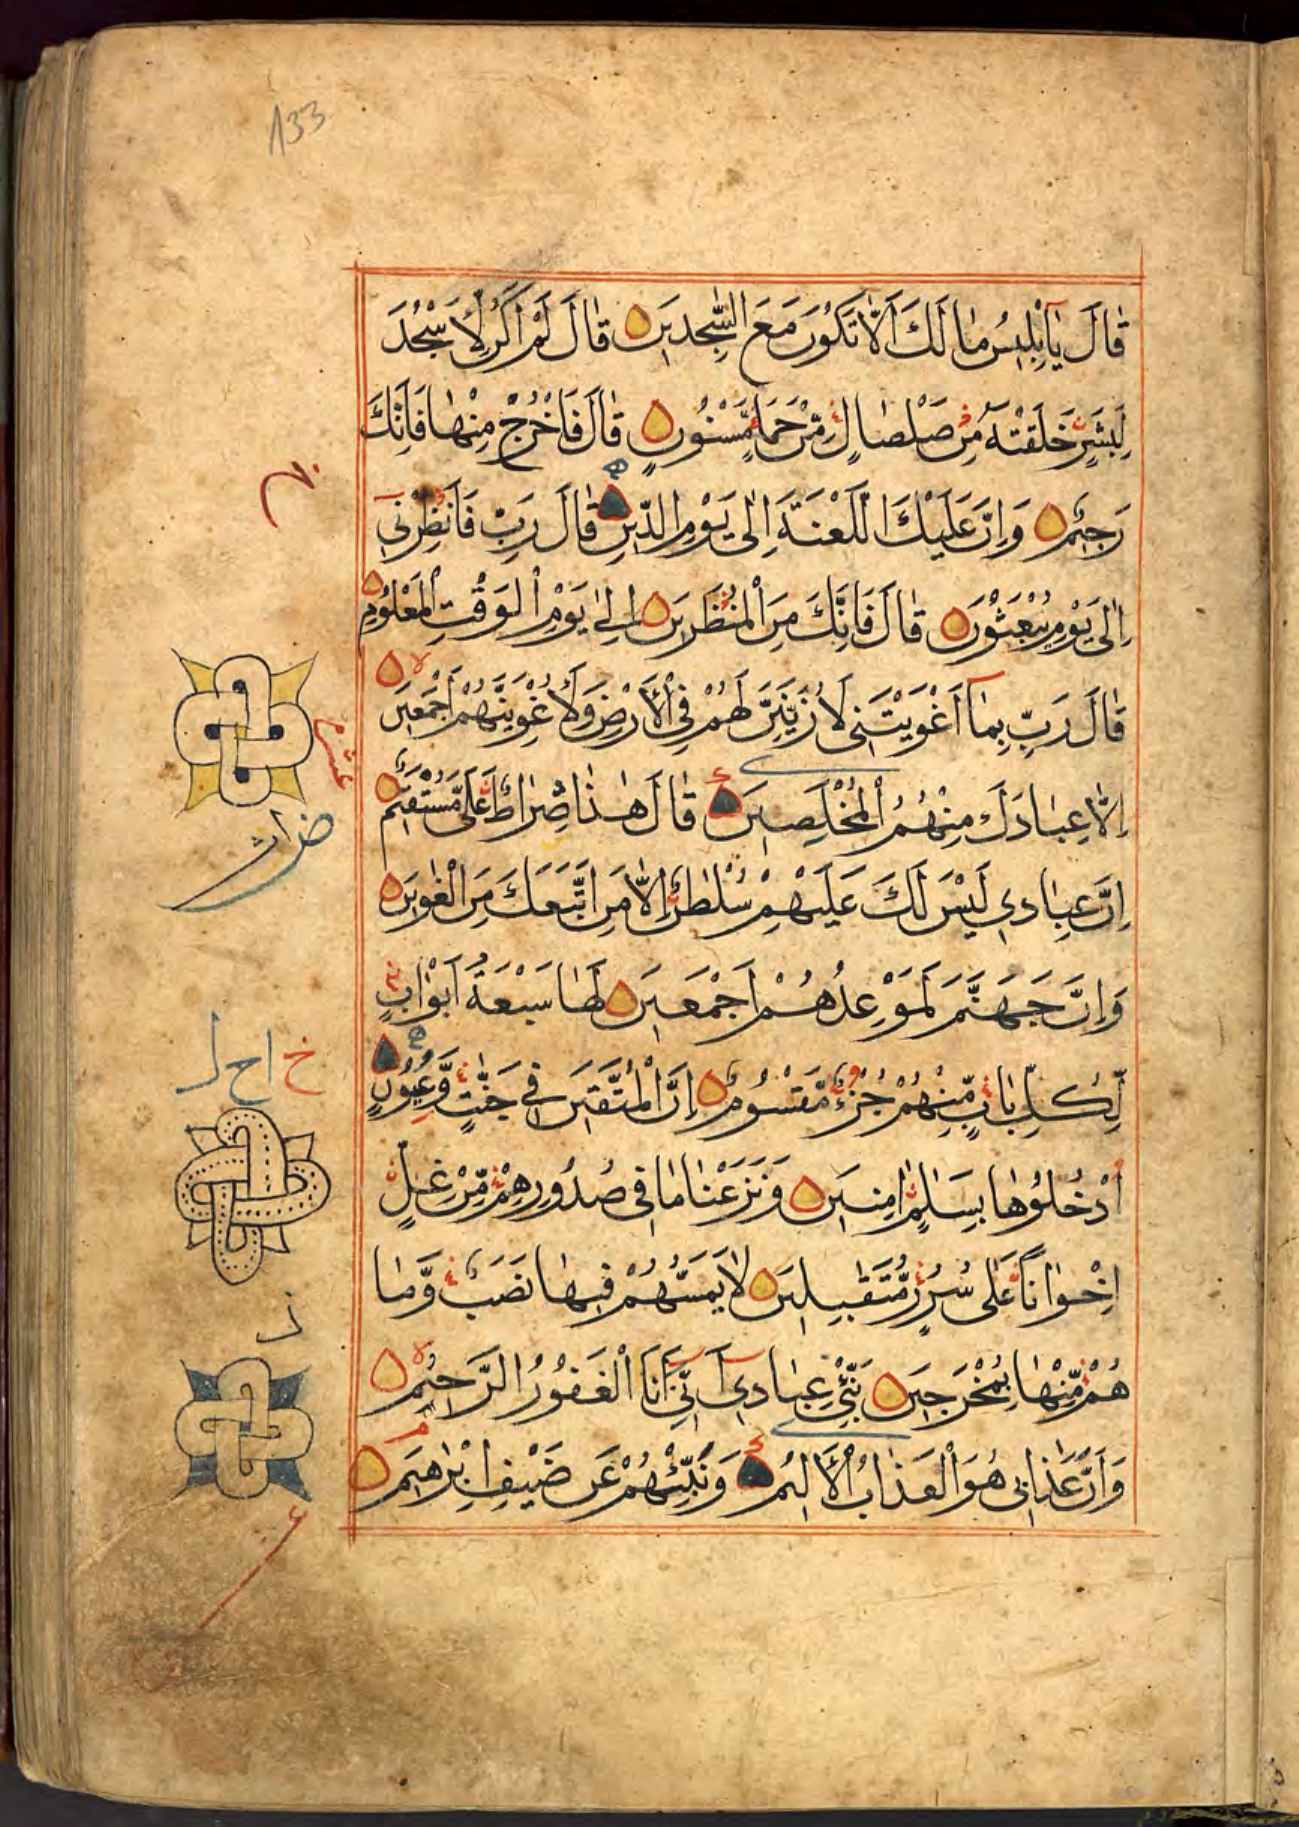 133
قَالَ يَا إِبْلِيسُ مَا لَكَ أَلَّا تَكُونَ مَعَ السّٰجِدِينَ قَالَ لَمْ أَكُنْ لِأَسْجُدَ
لِبَشَرٍ خَلَقْتَهُ مِنْ صَلْصَالٍ مِّنْ حَمَإٍ مَّسْنُونٍ قَالَ فَاخْرُجْ مِنْهَا فَإِنَّكَ
رَجِيمٌ وَإِنَّ عَلَيْكَ اللَّعْنَةَ إِلٰى يَوْمِ الدِّينِ قَالَ رَبِّ فَأَنْظِرْنِي
إِلٰى يَوْمِ يُبْعَثُونَ قَالَ فَإِنَّكَ مِنَ الْمُنْظَرِينَ إِلٰى يَوْمِ الْوَقْتِ الْمَعْلُومِ
قَالَ رَبِّ بِمَا أَغْوَيْتَنِي لَأُزَيِّنَنَّ لَهُمْ فِي الْأَرْضِ وَلَأُغْوِيَنَّهُمْ أَجْمَعِينَ
إِلَّا عِبَادَكَ مِنْهُمُ الْمُخْلَصِينَ قَالَ هٰذَا صِرَاطٌ عَلَيَّ مُّسْتَقِيمٌ
عشر
إِنَّ عِبَادِي لَيْسَ لَكَ عَلَيْهِمْ سُلْطٰنٌ إِلَّا مَنِ اتَّبَعَكَ مِنَ الْغٰوِينَ
وَإِنَّ جَهَنَّمَ لَمَوْعِدُهُمْ أَجْمَعِينَ لَهَا سَبْعَةُ أَبْوَابٍ
لِّكُلِّ بَابٍ مِّنْهُمْ جُزْءٌ مَّقْسُومٌ إِنَّ الْمُتَّقِينَ فِي جَنّٰتٍ وَّعُيُونٍ
أُدْخُلُوهَا بِسَلٰمٍ اٰمِنِينَ وَنَزَعْنَا مَا فِي صُدُورِهِمْ مِّنْ غِلٍّ
إِخْوَانًا عَلٰى سُرُرٍ مُّتَقٰبِلِينَ لَا يَمَسُّهُمْ فِيهَا نَصَبٌ وَّمَا
هُمْ مِّنْهَا بِمُخْرَجِينَ نَبِّئْ عِبَادِي أَنِّي أَنَا الْغَفُورُ الرَّحِيمُ
وَأَنَّ عَذَابِي هُوَ الْعَذَابُ الْأَلِيمُ وَنَبِّئْهُمْ عَنْ ضَيْفِ إِبْرٰهِيمَ